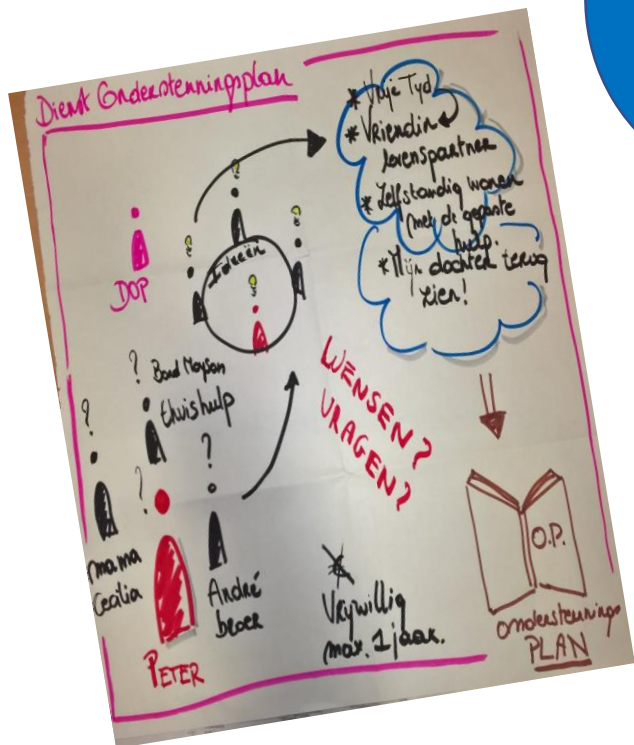 Dienst Ondersteuningsplan
* Vrije Tyd
* Vriendin
levenspartner
* Zelfstandig wonen
(met de gepaste
hulp.
* Mijn dochter terug
zien!
Ideeën
DOP
? Bond Moyson
thuishulp
?
?
?
WENSEN?
VRAGEN?
mama
Cecilia
André
broer
PETER
€
Vrywillig
max. 1 jaar.
O.P.
ondersteunings
PLAN